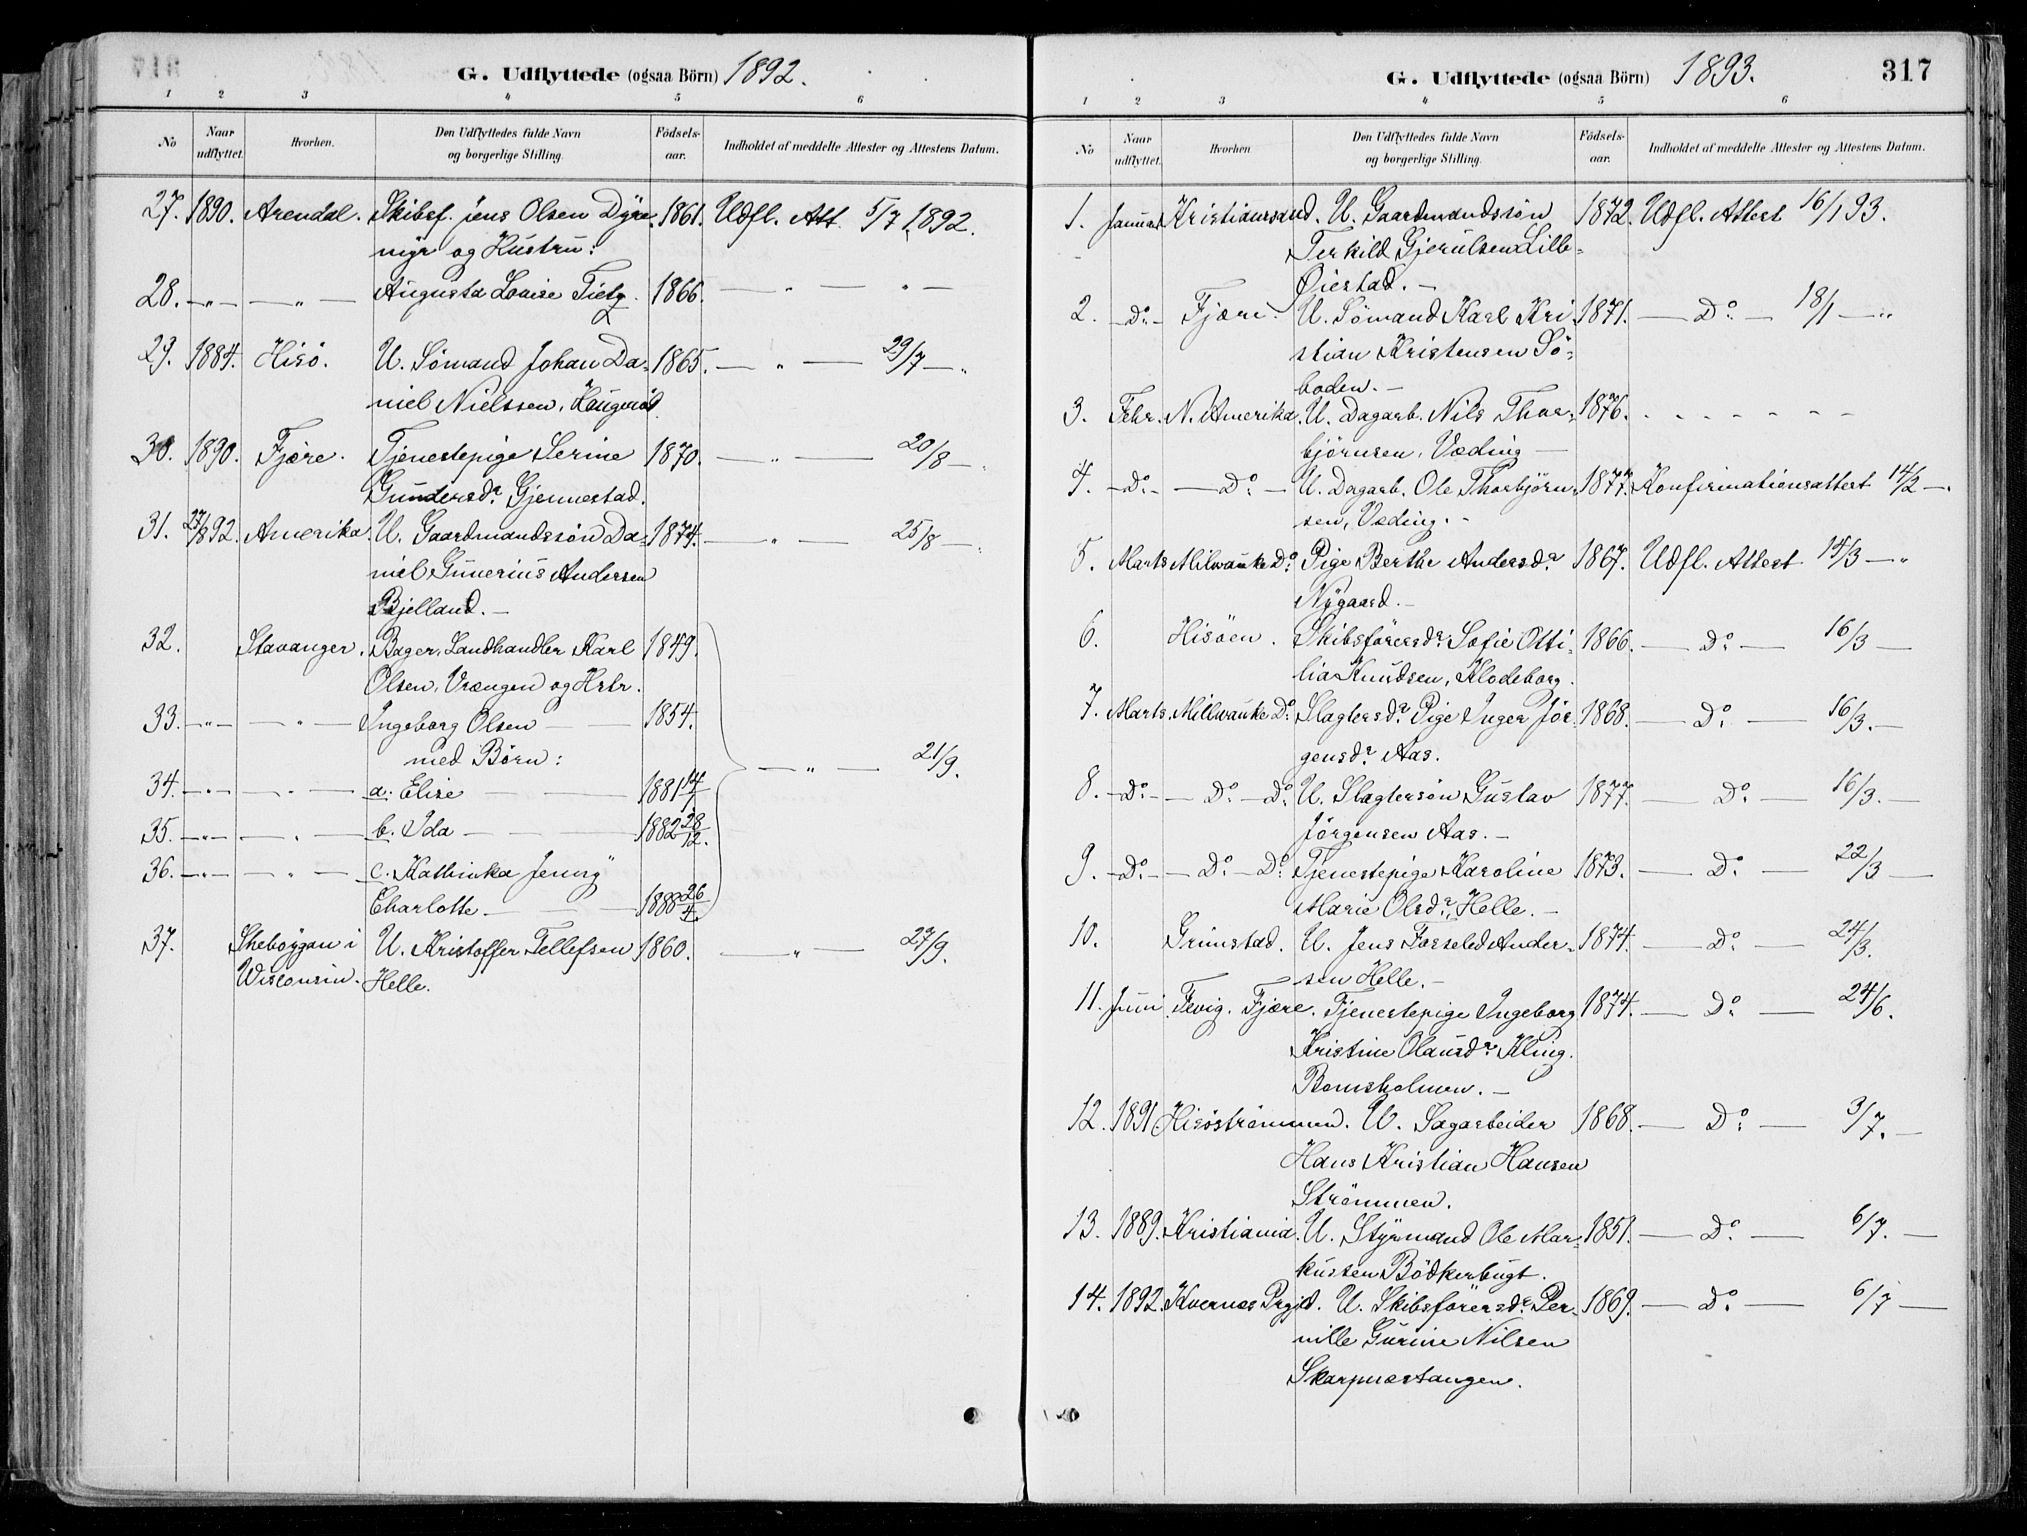 G. Udflyttede (ogsaa Börn) 1892.
1 2 3 4 5 6
No Naar udflyttet. Hvorhen. Den Udflyttedes fulde Navn og borgerlige Stilling. Födsels-aar. Indholdet af meddelte Attester og Attestens Datum.
27. 1890. Arendal. Skibsf. Jens Olsen Dyre- 1861. Udfl. Att. 5/7 1892.
myr og Hustru:
28. -„- — „ — Augusta Louise Tietz. 1866. — „ — „ —
29. 1884. Hisö. U. Sömand Johan Da- 1865. — „ — 29/7 — „
niel Nielssen, Haugerö
30. 1890. Fjære. Tjenestepige Serine 1870. — „ — 20/8 — „
Gundersd. Gjennestad.
31. 27/8 92. Amerika. U. Gaardmandssön Da- 1874. — „ — 25/8 — „
niel Gunerius Andersen
Bjelland. —
32. Stavanger. Bager, Landhandler Karl 1849.
Olsen, Vrængen og Hstr.
33. -„- — „ — Ingeborg Olsen — 1854.
med Börn: — „ — 21/9.
34. -„- — „ — a. Elise — 1881 14/1
35. -„- — „ — b. Ida — 1882 28/12.
36. -„- — „ — c. Kathinka Jenny
Charlotte — 1888 26/4.
37. Sheboygan i U. Kristoffer Tellefsen 1860. — „ — 27/9.
Wisconsin. Helle.
G. Udflyttede (ogsaa Börn) 1893. 317
1 2 3 4 5 6
No Naar udflyttet. Hvorhen. Den Udflyttedes fulde Navn og borgerlige Stilling. Födsels-aar. Indholdet af meddelte Attester og Attestens Datum.
1. Januar Kristianssand. U. Gaardmandssön 1872. Udfl. Attest 16/1 93.
Terkild Gjerulsen Lille-
Øiestad. —
2. -Do- Fjære. U. Sömand Karl Kri 1871. — Do — 18/1 — „
stian Kristensen Sö-
boden. —
3. Febr. N. Amerika. U. Dagarb. Nils Thor- 1876. - - - - - - -
björnsen, Væding —
4. -Do- — Do — U. Dagarb. Ole Thorbjörn- 1877. Konfirmationsattest 14/2 —.
sen, Væding. -
5. Marts Milwauke Do. Pige Berthe Andersd. 1867. Udfl. Attest 14/3 — „
Nygaard. —
6. Hisöen. Skibsförersd. Sofie Otti- 1866. — Do — 16/3 —
lia Knudsen, Klodeborg.
7. Marts Millwauke Do. Slagtersd. Pige Inger Jör- 1868. — Do — 16/3. —
gensd. Aas.
8. -Do- — Do — Do. U. Slagtersön Gustav 1877. — Do — 16/3. —
Jörgensen Aas. —
9. -Do- — Do — Do. Tjenestepige Karoline 1873. — Do — 22/3 —
Marie Olsd., Helle. —
10. Grimstad. U. Jens Ander- 1874. — Do — 24/3.
sen Helle. —
11. Juni Fevig. Fjære. Tjenestepige Ingeborg 1874. — Do — 24/6.
Kristine Olausd. Kling.
Bomsholmen. —
12. 1891 Hisöströmmen. U. Sagarbeider 1868. — Do — 3/7. —
Hans Kristian Hansen
Strömmen.
13. 1889. Kristiania. U. Styrmand Ole Mar- 1851. — Do — 6/7. —
kussen Bödkerbugt.
14. 1892. Kvernes Prgjld. U. Skibsförersd. Per- 1869. — Do — 6/7 —
nille Gurine Nilsen
Skarpnæstangen.